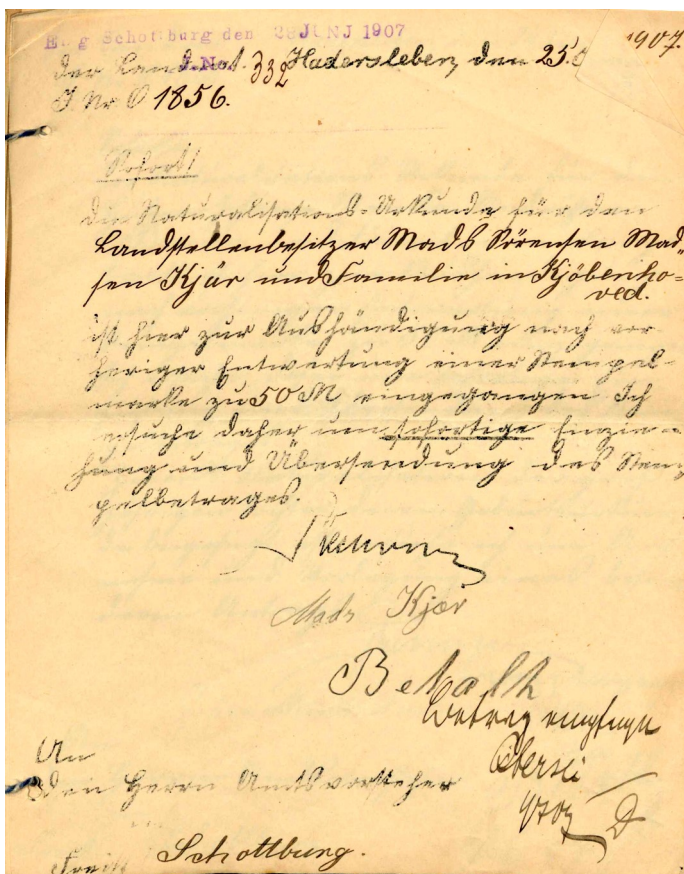 Eing Schottburg den 28 JUNJ 1907
J.No. 332
Der Landrat. Hadersleben, den 25. 1907.
J. Nr. O 1856.
Sofort!
Die Naturalisations-Urkunde für den
Landstellenbesitzer Mads Sörensen Mad-
sen Kjär und Familie in Kjöbenho-
ved.
ist hier zur Aushändigung nach vor
heriger Entwertung einer Stempel-
marke zu 50 M eingegangen Ich
ersuche daher um sofortige Einzie-
hung und Übersendung des Stem-
pelbetrages.
Mads Kjær
Betalt
Betrag
An
den Herrn Amtsvorsteher
Schottburg.